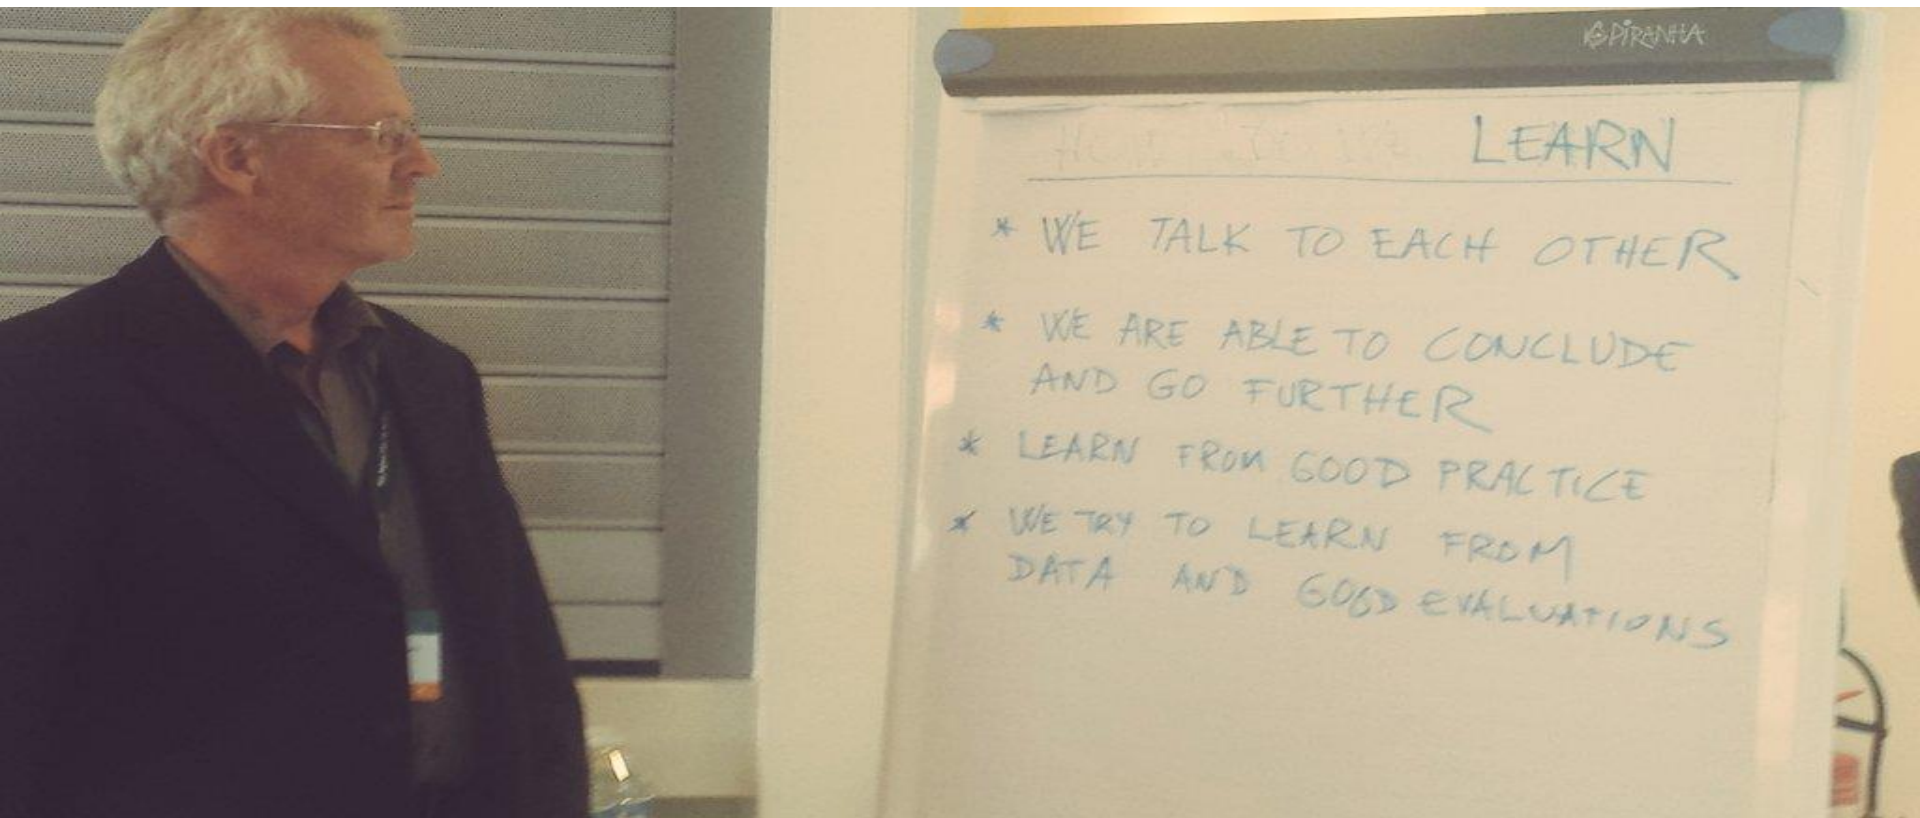 PIRANHA
LEARN
* WE TALK TO EACH OTHER
* WE ARE ABLE TO CONCLUDE
AND GO FURTHER
* LEARN FROM GOOD PRACTICE
* WE TRY TO LEARN FROM
DATA AND GOOD EVALUATIONS